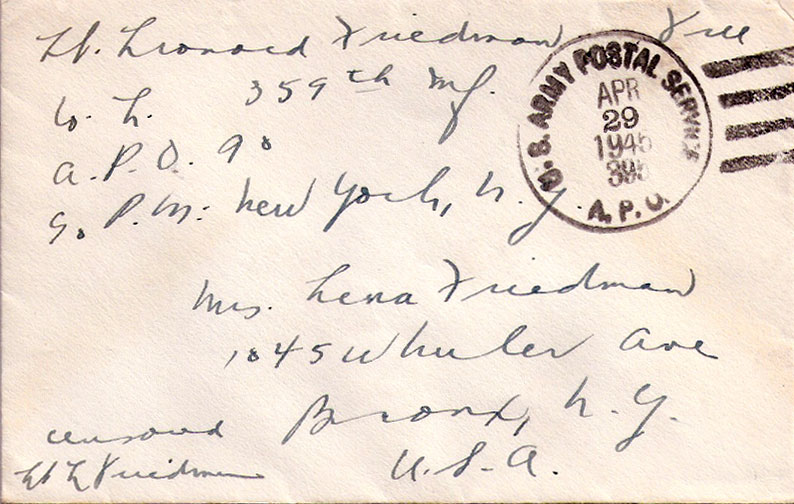 Lt. Leonard Friedman Free
Co. L. 359th Inf.
A.P.O. 90
C/o P.M. New York, N.Y.
U.S. ARMY POSTAL SERVICE
APR
29
1945
A.P.O.
Mrs. Lena Friedman
1045 Wheeler Ave
Bronx, N.Y.
U.S.A.
censored
Lt L Friedman